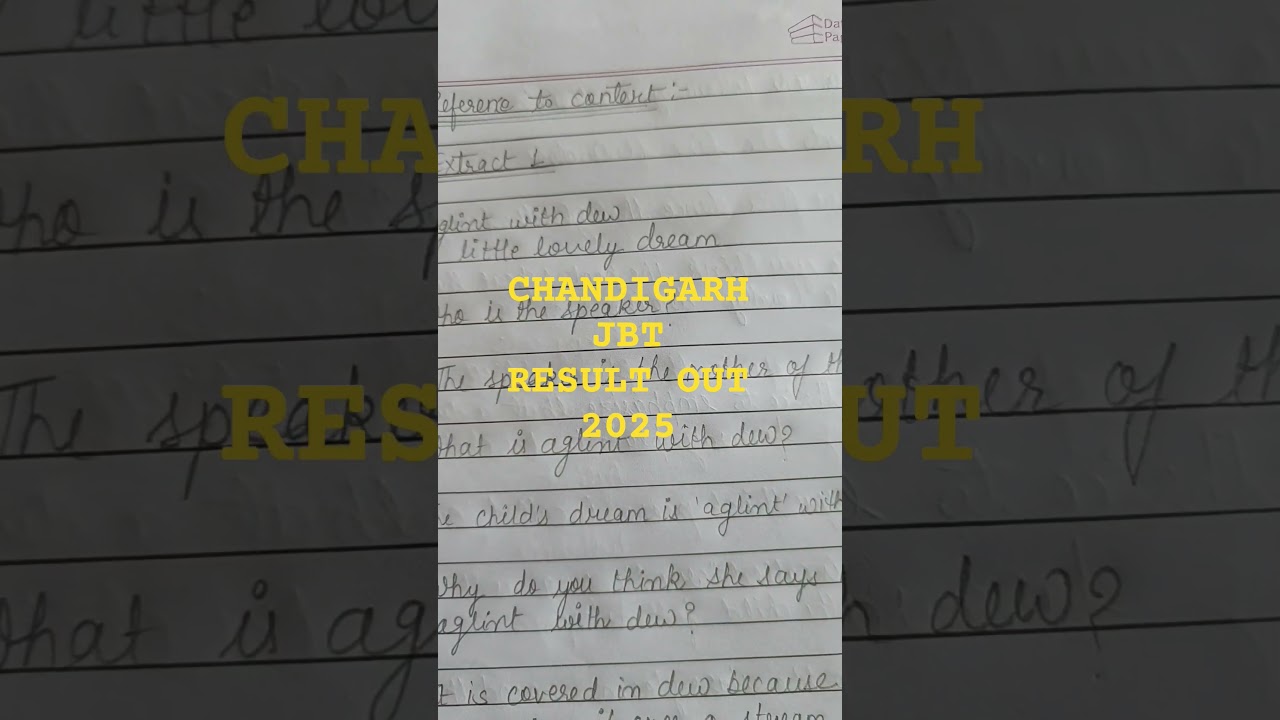 Da
Pa
eference to context :-
Extract 1
aglint with dew
little lovely dream
ho is the speaker?
CHANDIGARH
JBT
RESULT OUT
2025
The speaker is the mother of th
hat is aglint with dew?
e child's dream is 'aglint' with
why do you think she says
aglint with dew?
t is covered in dew because
a stream